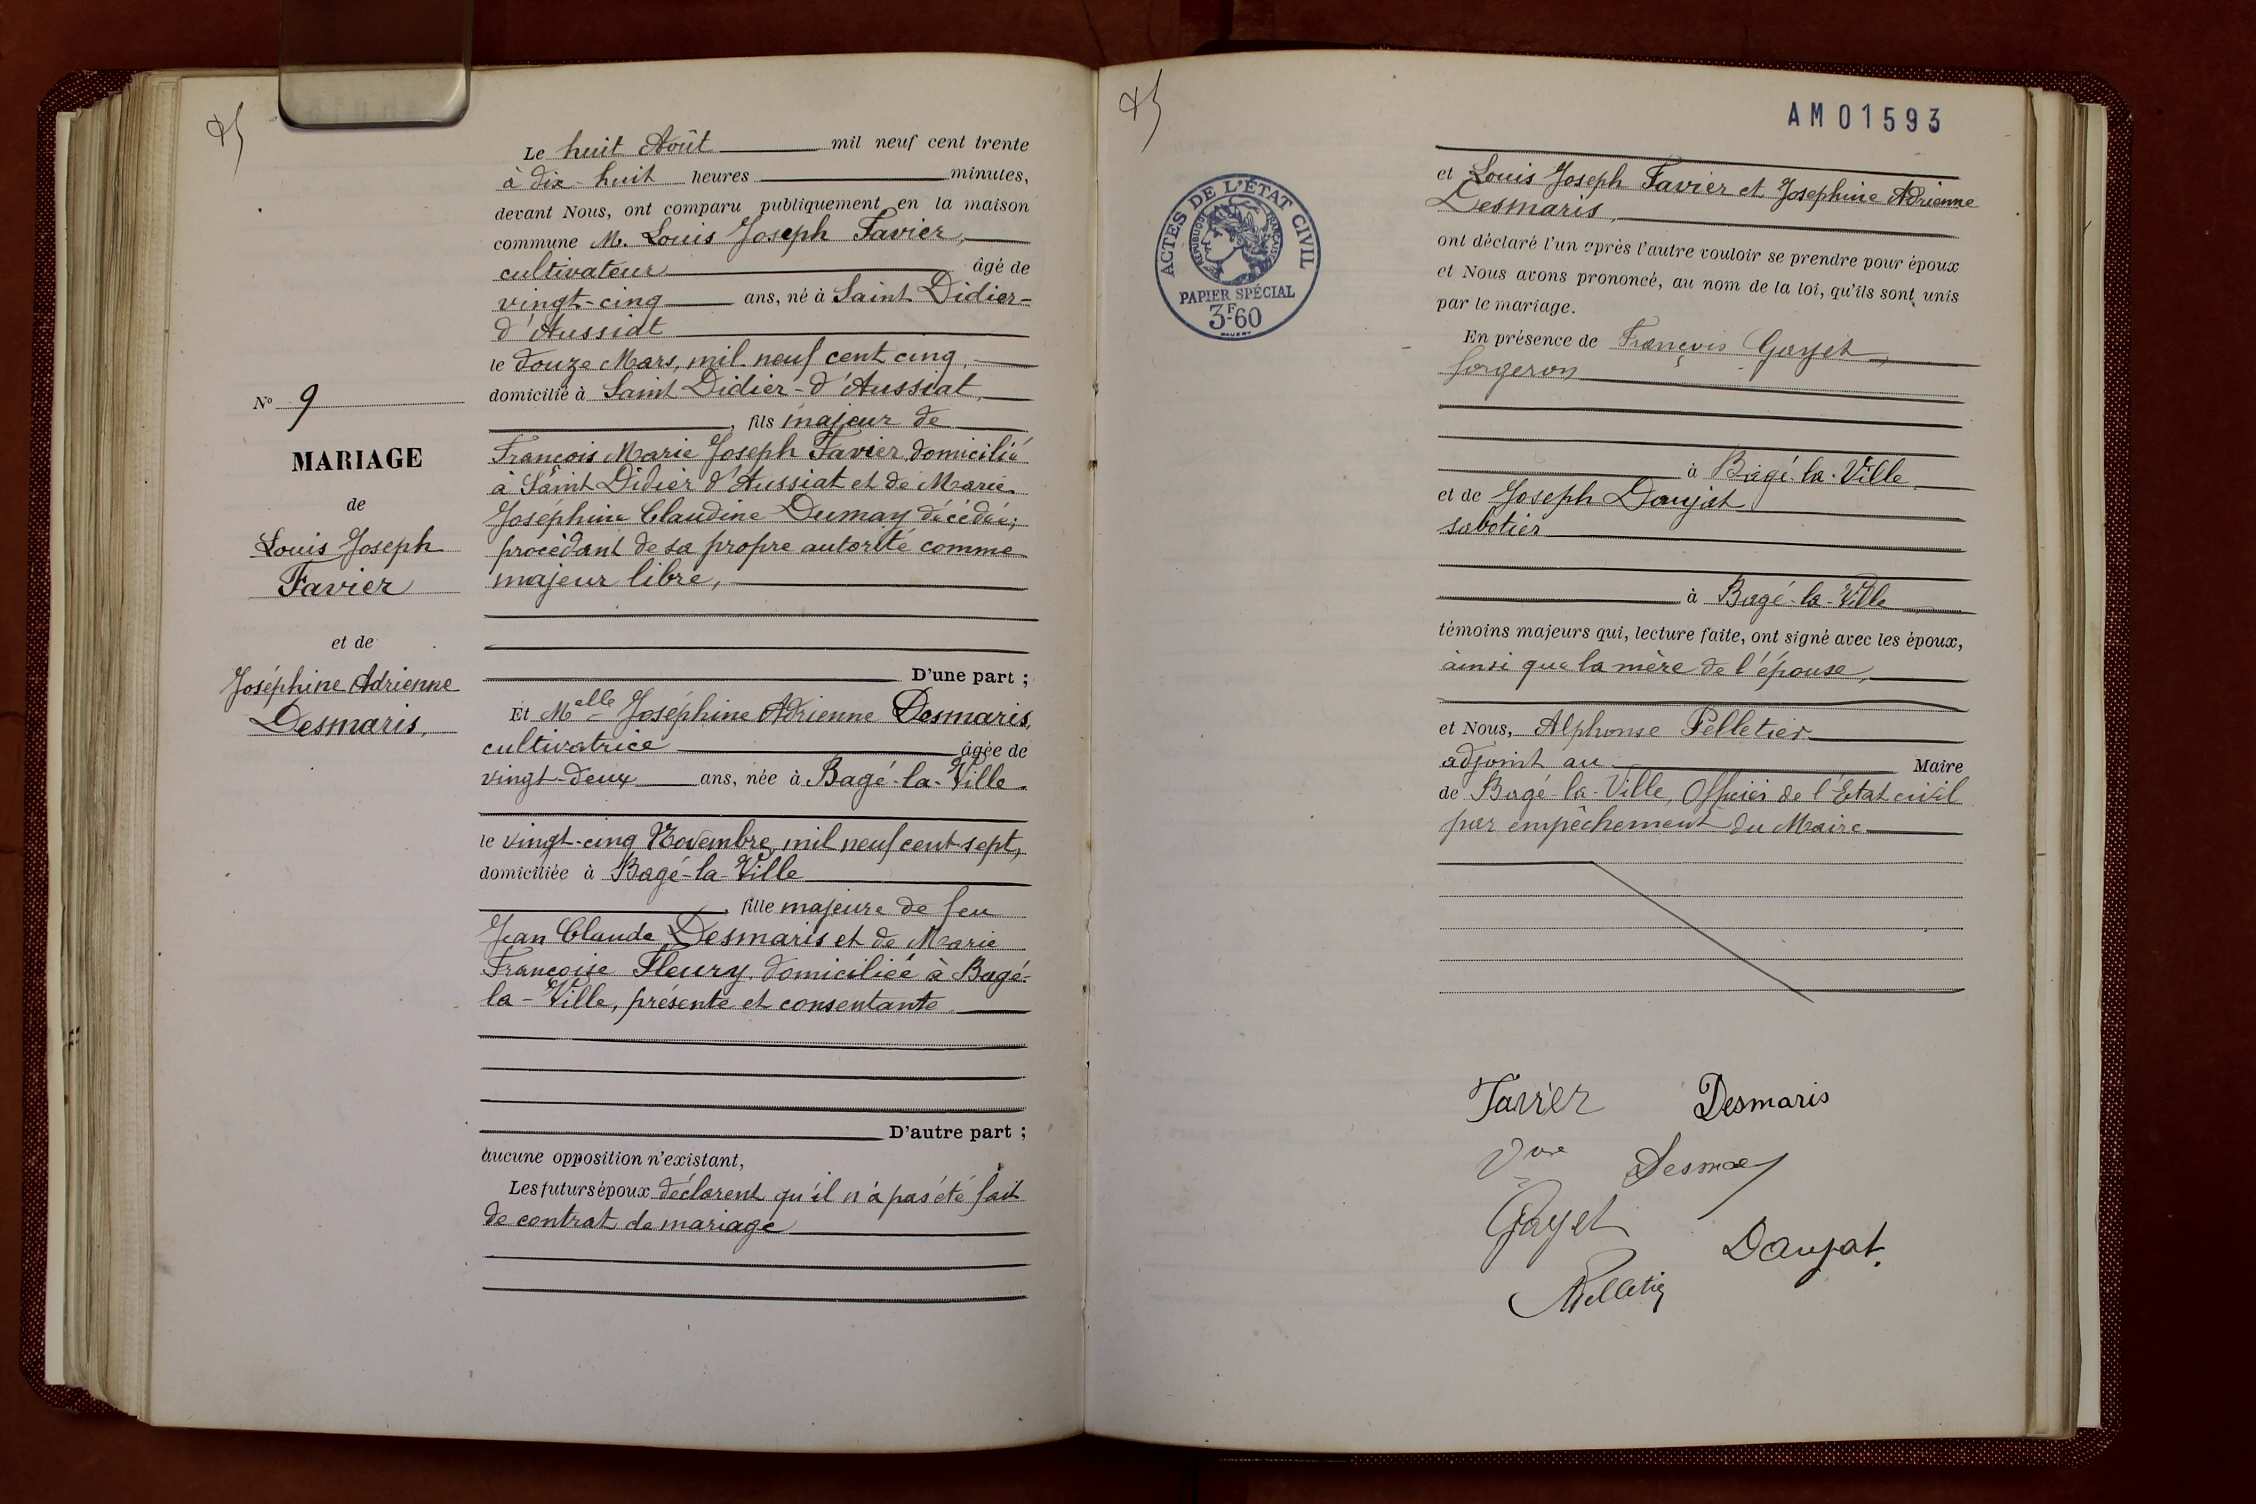 Le huit Août mil neuf cent trente
à dix-huit heures minutes,
devant Nous, ont comparu publiquement en la maison
commune M. Louis Joseph Favier,
cultivateur âgé de
vingt-cinq ans, né à Saint Didier-
d'Aussiat
le douze Mars, mil neuf cent cinq,
domicilié à Saint Didier-d'Aussiat,
, fils majeur de
François Marie Joseph Favier domicilié
à Saint Didier d'Aussiat et de Marie
Joséphine Claudine Dumay décédée;
procèdant de sa propre autorité comme
majeur libre,
D'une part ;
Et Melle Joséphine Adrienne Desmaris,
cultivatrice âgée de
vingt-deux ans, née à Bagé-la-Ville
le vingt-cinq Novembre mil neuf cent sept,
domiciliée à Bagé-la-Ville
, fille majeure de feu
Jean Claude Desmaris et de Marie
Françoise Fleury domiciliée à Bagé-
la-Ville, présente et consentante
D'autre part ;
aucune opposition n'existant,
Les futurs époux déclarent qu'il n'a pas été fait
de contrat de mariage
N° 9
MARIAGE
de
Louis Joseph
Favier
et de
Joséphine Adrienne
Desmaris,
AM01593
ACTES DE L'ÉTAT CIVIL
RÉPUBLIQUE FRANÇAISE
PAPIER SPÉCIAL
3F60
et Louis Joseph Favier et Josephine Adrienne
Desmaris,
ont déclaré l'un après l'autre vouloir se prendre pour époux
et Nous avons prononcé, au nom de la loi, qu'ils sont unis
par le mariage.
En présence de François Gayet,
forgeron
à Bâgé-la-Ville
et de Joseph Daujat
sabotier
à Bagé-la-Ville
témoins majeurs qui, lecture faite, ont signé avec les époux,
ainsi que la mère de l'épouse,
et Nous, Alphonse Pelletier
adjoint au Maire
de Bagé-la-Ville, Officier de l'Etat civil
par empêchement du Maire
Favier Desmaris
Vve
Gayet Daujat.
Pelletier